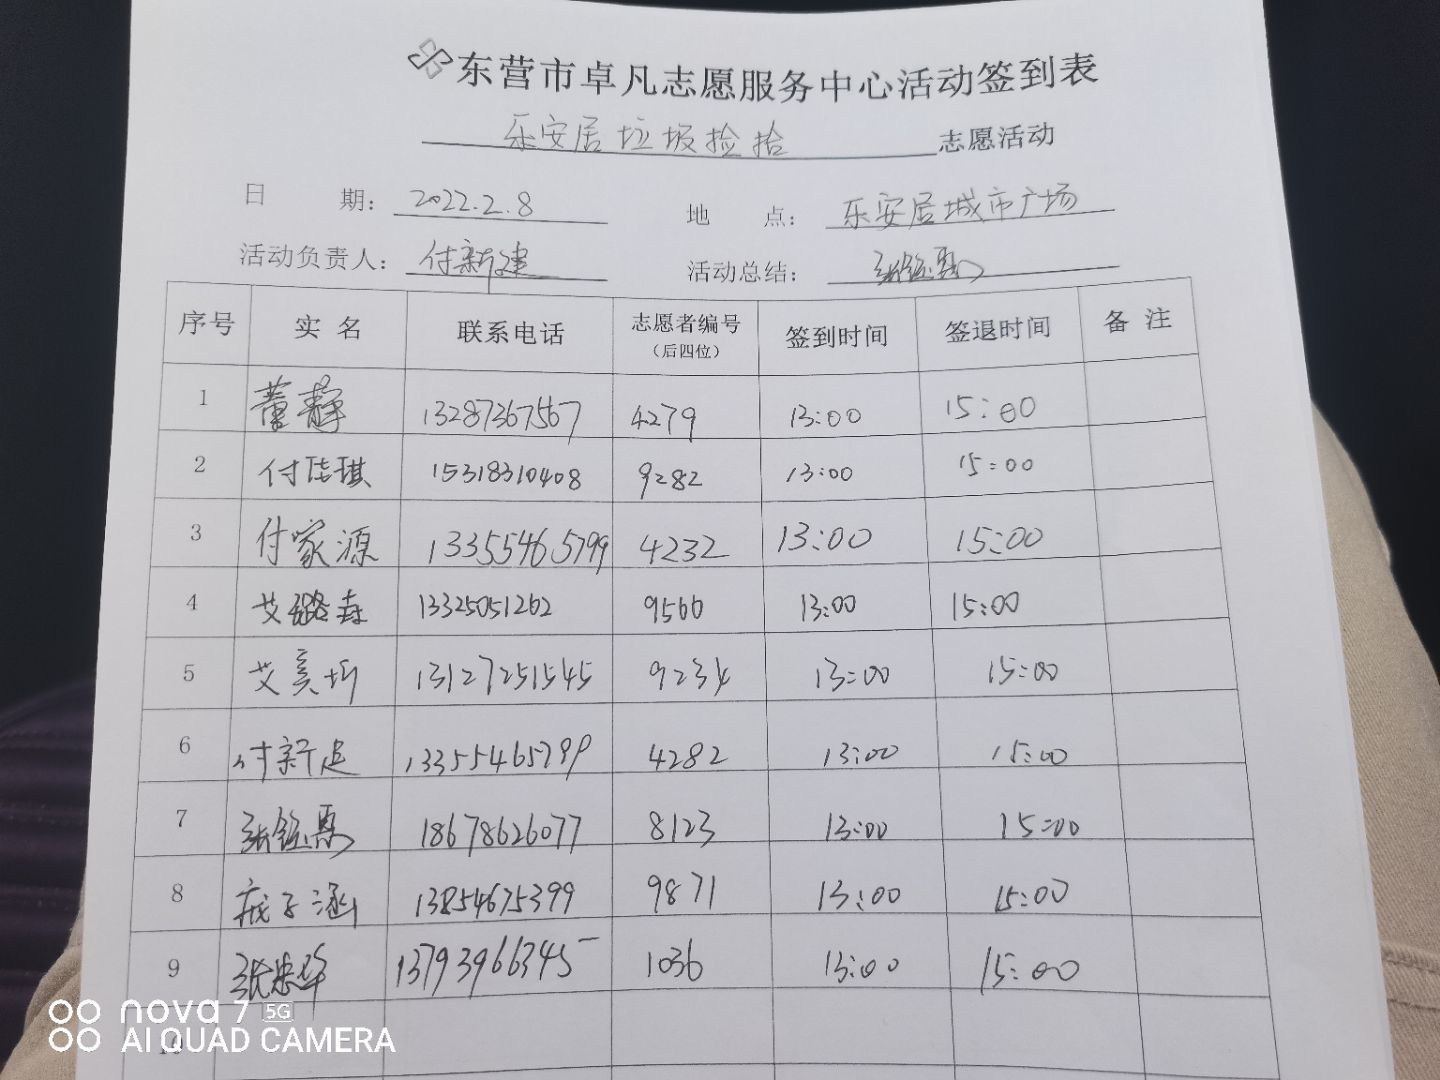 东营市卓凡志愿服务中心活动签到表
乐安居垃圾捡拾 志愿活动
日 期： 2022.2.8 地 点： 乐安居城市广场
活动负责人： 付新建 活动总结：
序号 实 名 联系电话 志愿者编号（后四位） 签到时间 签退时间 备 注
1 董静 13287367567 4279 13:00 15:00
2 15318310408 9282 13:00 15:00
3 付家源 13355465799 4232 13:00 15:00
4 13325051262 9566 13:00 15:00
5 13127251545 9234 13:00 15:00
6 付新建 13355465799 4282 13:00 15:00
7 18678626077 8123 13:00 15:00
8 13854675399 9871 13:00 15:00
9 张忠华 13793966345 1036 13:00 15:00
10
nova 7 5G
AI QUAD CAMERA